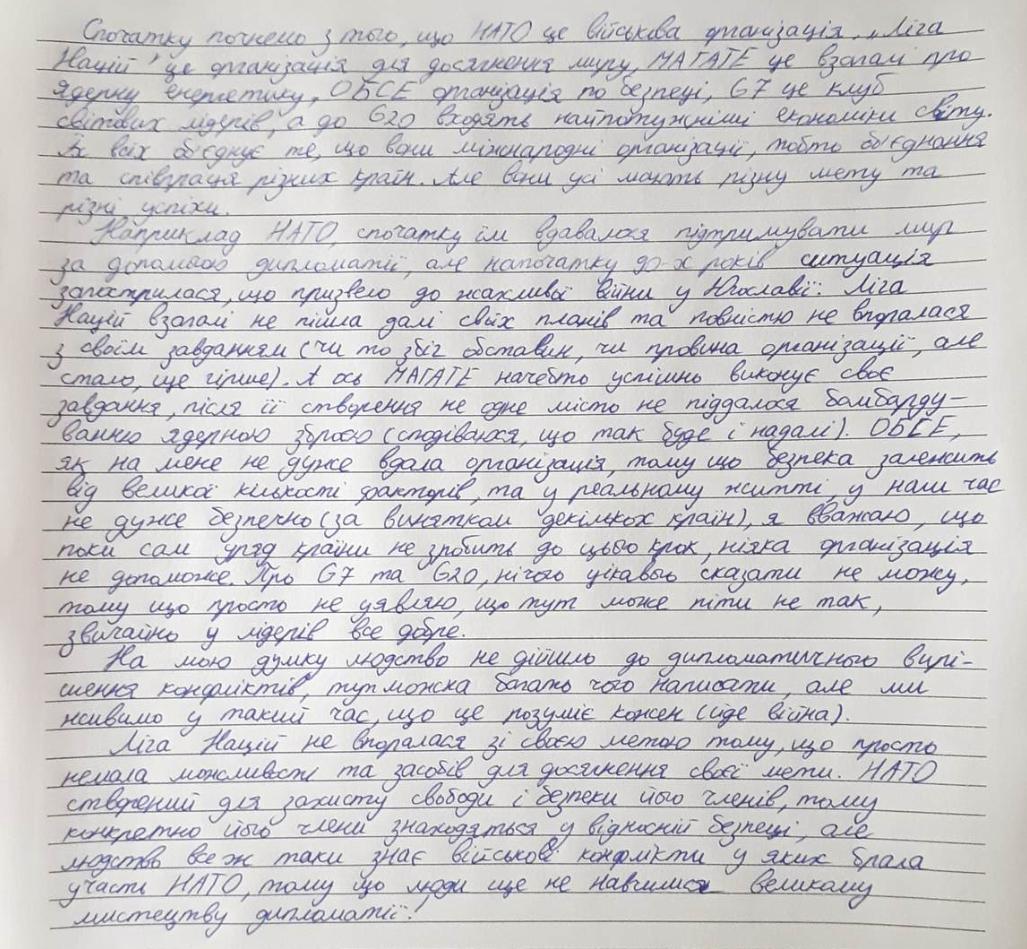 Спочатку почнемо з того, що НАТО це військова організація. "Ліга
Націй" це організація для досягнення миру, МАГАТЕ це взагалі про
ядерну енергетику, ОБСЕ організація по безпеці, G7 це клуб
світових лідерів, а до G20 входять найпотужніші економіки світу.
Їх всіх об'єднує те, що вони міжнародні організації, тобто об'єднання
та співпраця різних країн. Але вони усі мають різну мету та
різні успіхи.
Наприклад НАТО, спочатку їм вдавалося підтримувати мир
за допомогою дипломатії, але напочатку 90-х років ситуація
загострилася, що призвело до жахливої війни у Югославії. Ліга
Націй взагалі не пішла далі своїх планів та повністю не впоралася
з своїм завданням (чи то збіг обставин, чи провина організації, але
стало, ще гірше). А ось МАГАТЕ начебто успішно виконує своє
завдання, після її створення не одне місто не піддалося бомбарду-
ванню ядерною зброєю (сподіваюся, що так буде і надалі). ОБСЕ,
як на мене не дуже вдала організація, тому що безпека залежить
від великої кількості факторів, та у реальному житті, у наш час
не дуже безпечно (за винятком декількох країн), я вважаю, що
поки сам уряд країни не зробить до цього крок, ніяка організація
не допоможе. Про G7 та G20, нічого цікавого сказати не можу,
тому що просто не уявляю, що тут може піти не так,
звичайно у лідерів все добре.
На мою думку людство не дійшло до дипломатичного вирі-
шення конфліктів, тут можна багато чого написати, але ми
живимо у такий час, що це розуміє кожен (іде війна).
Ліга Націй не впоралася зі своєю метою тому, що просто
немала можливості та засобів для досягнення своєї мети. НАТО
створений для захисту свободи і безпеки його членів, тому
конкретно його члени знаходяться у відносній безпеці, але
людство все ж таки знає військові конфлікти у яких брала
участь НАТО, тому що люди ще не навчилися великому
мистецтву дипломатії!